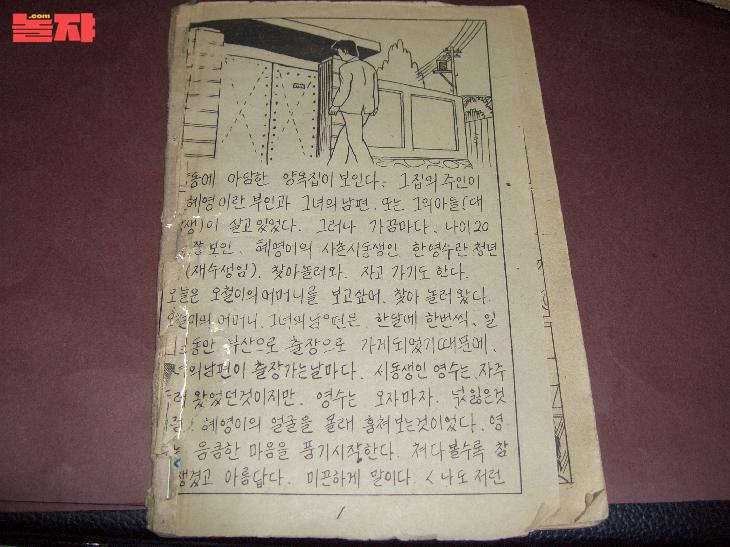 놀쟈
.com
동에 아담한 양옥집이 보인다. 그집의 주인이
혜영이란 부인과 그녀의 남편. 또는 그의 아들(대
생)이 살고 있었다. 그러나 가끔마다. 나이 20
쯤 보인. 혜영이의 사촌시동생인 한영수란 청년
(재수생임). 찾아놀러와. 자고 가기도 한다.
오늘은 오철이의 어머니를 보고싶어. 찾아 놀러 왔다.
오철이의 어머니. 그녀의 남편은. 한달에 한번씩. 일
동안 산으로 출장으로 가게되었기때문에.
의남편이 출장가는날마다. 시동생인 영수는 자주
왔었던것이지만. 영수는 오자마자. 넋잃은것
혜영이의 얼굴을 몰래 훔쳐보는것이었다. 영
음큼한 마음을 품기시작한다. 쳐다볼수록 참
생겼고 아름답다. 미끈하게 말이다. <나도 저런
1